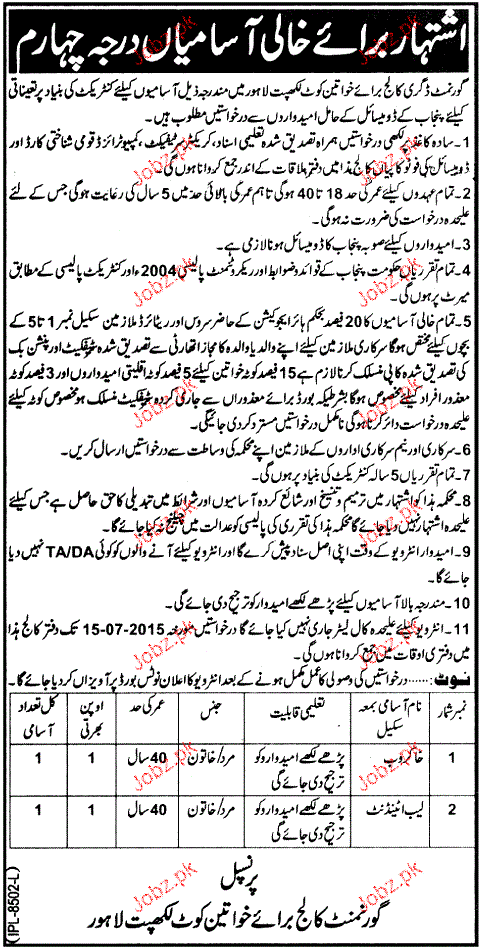 اشتہار برائے خالی آسامیاں درجہ چہارم
گورنمنٹ ڈگری کالج برائے خواتین کوٹ لکھپت لاہور میں مندرجہ ذیل آسامیوں کیلئے کنٹریکٹ کی بنیاد پر تعیناتی
کیلئے پنجاب کے ڈومیسائل کے حامل امیدواروں سے درخواستیں مطلوب ہیں۔
1- سادہ کاغذ پر لکھی درخواستیں ہمراہ تصدیق شدہ تعلیمی اسناد، کریکٹر سرٹیفکیٹ، کمپیوٹرائزڈ قومی شناختی کارڈ اور
ڈومیسائل کی فوٹو کاپیاں کالج ہذا میں دفتر ملاقات کے اندر جمع کروانا ہوں گی۔
2- تمام عہدوں کیلئے عمر کی حد 18 تا 40 ہوگی تاہم عمر کی بالائی حد میں 5 سال کی رعایت ہوگی جس کے لئے
علیحدہ درخواست کی ضرورت نہ ہوگی۔
3- امیدواروں کیلئے صوبہ پنجاب کا ڈومیسائل ہونا لازمی ہے۔
4- تمام تقرریاں حکومت پنجاب کے قوائد و ضوابط اور ریکروٹمنٹ پالیسی 2004ء اور کنٹریکٹ پالیسی کے مطابق
میرٹ پر ہوں گی۔
5- تمام خالی آسامیوں کا 20 فیصد بحکم ہائر ایجوکیشن کے حاضر سروس اور ریٹائرڈ ملازمین سکیل نمبر 1 تا 5 کے
بچوں کیلئے مختص ہوگا سرکاری ملازمین کیلئے اپنے والد یا والدہ کا مجاز اتھارٹی سے تصدیق شدہ سرٹیفکیٹ اور پنشن بک
کی تصدیق شدہ کاپی منسلک کرنا لازم ہے 15 فیصد کوٹہ خواتین کیلئے 5 فیصد کوٹہ اقلیتی امیدواروں اور 3 فیصد کوٹہ
معذور افراد کیلئے مخصوص ہوگا بشرطیکہ بورڈ برائے معذوراں سے جاری کردہ سرٹیفکیٹ منسلک ہو مخصوص کوٹہ کیلئے
علیحدہ درخواست دائر کرنا ہوگی نامکمل درخواستیں مسترد کر دی جائیگی۔
6- سرکاری اور نیم سرکاری اداروں کے ملازمین اپنے محکمہ کی وساطت سے درخواستیں ارسال کریں۔
7- تمام تقرریاں 5 سالہ کنٹریکٹ کی بنیاد پر ہوں گی۔
8- محکمہ ہذا کو اشتہار میں ترمیم و تنسیخ اور شائع کردہ آسامیوں اور شرائط میں تبدیلی کا حق حاصل ہے جس کیلئے
علیحدہ اشتہار نہیں دیا جائے گا محکمہ ہذا کی تقرری کی پالیسی کو عدالت میں چیلنج نہ کیا جائے گا۔
9- امیدوار انٹرویو کے وقت اپنی اصل سناد پیش کرے گا اور انٹرویو کیلئے آنے والوں کو کوئی TA/DA نہیں دیا
جائے گا۔
10- مندرجہ بالا آسامیوں کیلئے پڑھے لکھے امیدوار کو ترجیح دی جائے گی۔
11- انٹرویو کیلئے علیحدہ کال لیٹر جاری نہیں کیا جائے گا درخواستیں مورخہ 15-07-2015 تک دفتر کالج ہذا
میں دفتری اوقات میں جمع کروانا ہوں گی۔
نوٹ:...... درخواستیں کی وصولی کا عمل مکمل ہونے کے بعد انٹرویو کا اعلان نوٹس بورڈ پر آویزاں کر دیا جائے گا۔
نمبر شمار نام آسامی بمعہ سکیل تعلیمی قابلیت جنس عمر کی حد اوپن بھرتی کل تعداد آسامی
1 خاکروب پڑھے لکھے امیدوار کو ترجیح دی جائے گی مرد/خاتون 40 سال 1 1
2 لیب اٹینڈنٹ پڑھے لکھے امیدوار کو ترجیح دی جائے گی مرد/خاتون 40 سال 1 1
پرنسپل
گورنمنٹ کالج برائے خواتین کوٹ لکھپت لاہور
(IPL-8502-L)
Jobz.pk